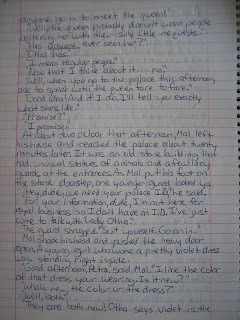 anyone go in to meet the queen?"
"Well, the queen probably doesn't want people
bothering her with their silly little requests."
"Has anyone ever seen her?"
"Otha has."
"I mean regular people."
"Now that I think about it... no."
"Well, when you go to the palace this afternoon,
ask to speak with the queen face to face."
"Good idea! And if I do, I'll tell you exactly
what she's like."
"Promise?"
"I promise."
At about two o'clock that afternoon, Mal left
his house and reached the palace about twenty
minutes later. It was an old stone building that
had unusual statues of animals and
guards at the entrances. As Mal put his foot on
the stone doorstep, one younger guard looked up.
"Hey, dude, we need your palace I.D.," he said.
"For your information, dude, I'm not here for
royal business, so I don't have an I.D. I've just
come to talk with Lady Otha."
The guard shrugged. "Suit yourself. Go on in."
Mal shook his head and pushed the heavy door
open. A young girl who wore a pretty violet dress
was standing right inside.
"Good afternoon, Petra," said Mal. "I like the color
of that dress your wearing. Is it new?"
"What's new, the color or the dress?"
"Well, both."
"They are both new. Otha says violet is the